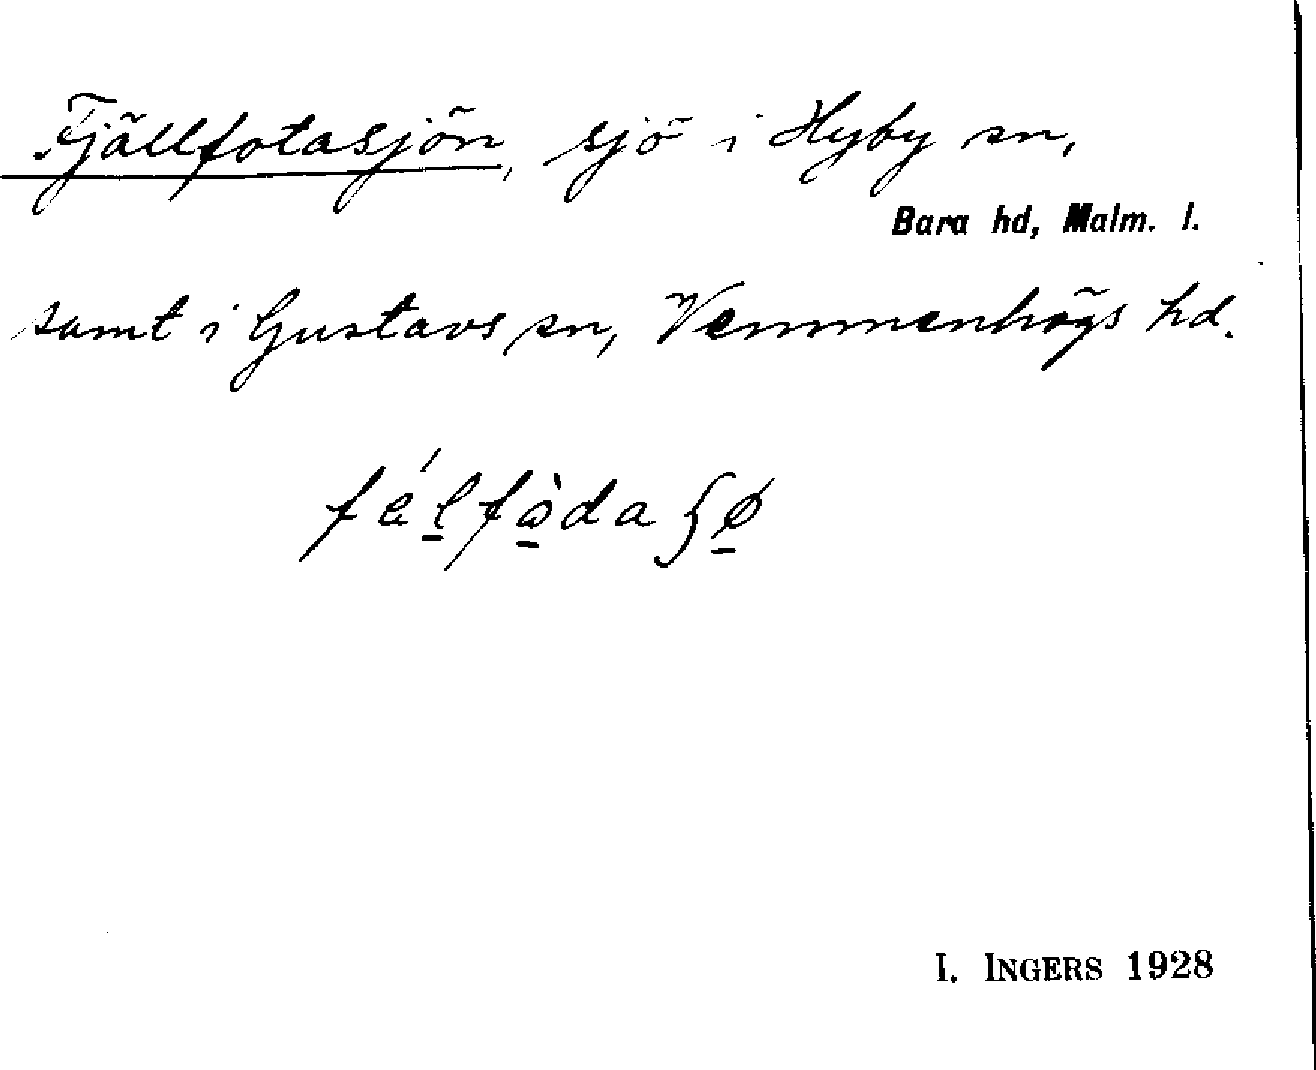 Fjällfotasjön, sjö i Hyby sn,
Bara hd, Malm. l.
samt i Gustavs sn, Vemmenhögs hd.
I. INGERS 1928